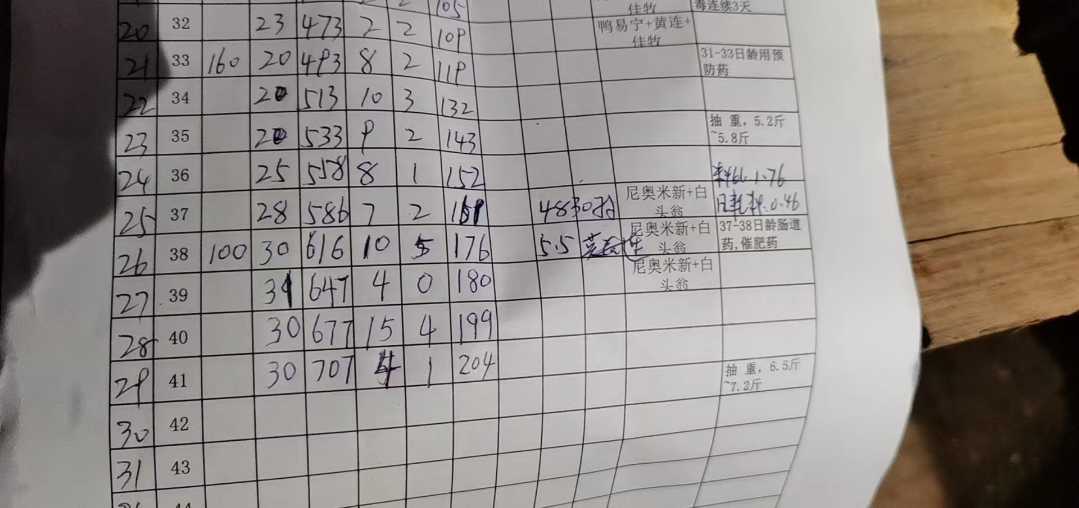 105
佳牧
毒连续3天
20 32 23 473 2 2 109 鸭易宁+黄连+
佳牧
21 33 160 20 493 8 2 119 31-33日龄用预
防药
22 34 20 513 10 3 132
23 35 20 533 9 2 143 抽 重，5.2斤
~5.8斤
24 36 25 558 8 1 152 料比1.76
25 37 28 586 7 2 161 48 尼奥米新+白 日耗料0.46
头翁
26 38 100 30 616 10 5 176 5.5 尼奥米新+白 37-38日龄肠道
头翁 药,催肥药
27 39 31 647 4 0 180 尼奥米新+白
头翁
28 40 30 677 15 4 199
29 41 30 707 4 1 204 抽 重，6.5斤
~7.2斤
30 42
31 43